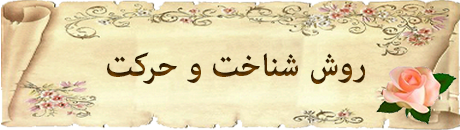 روش شناخت و حرکت